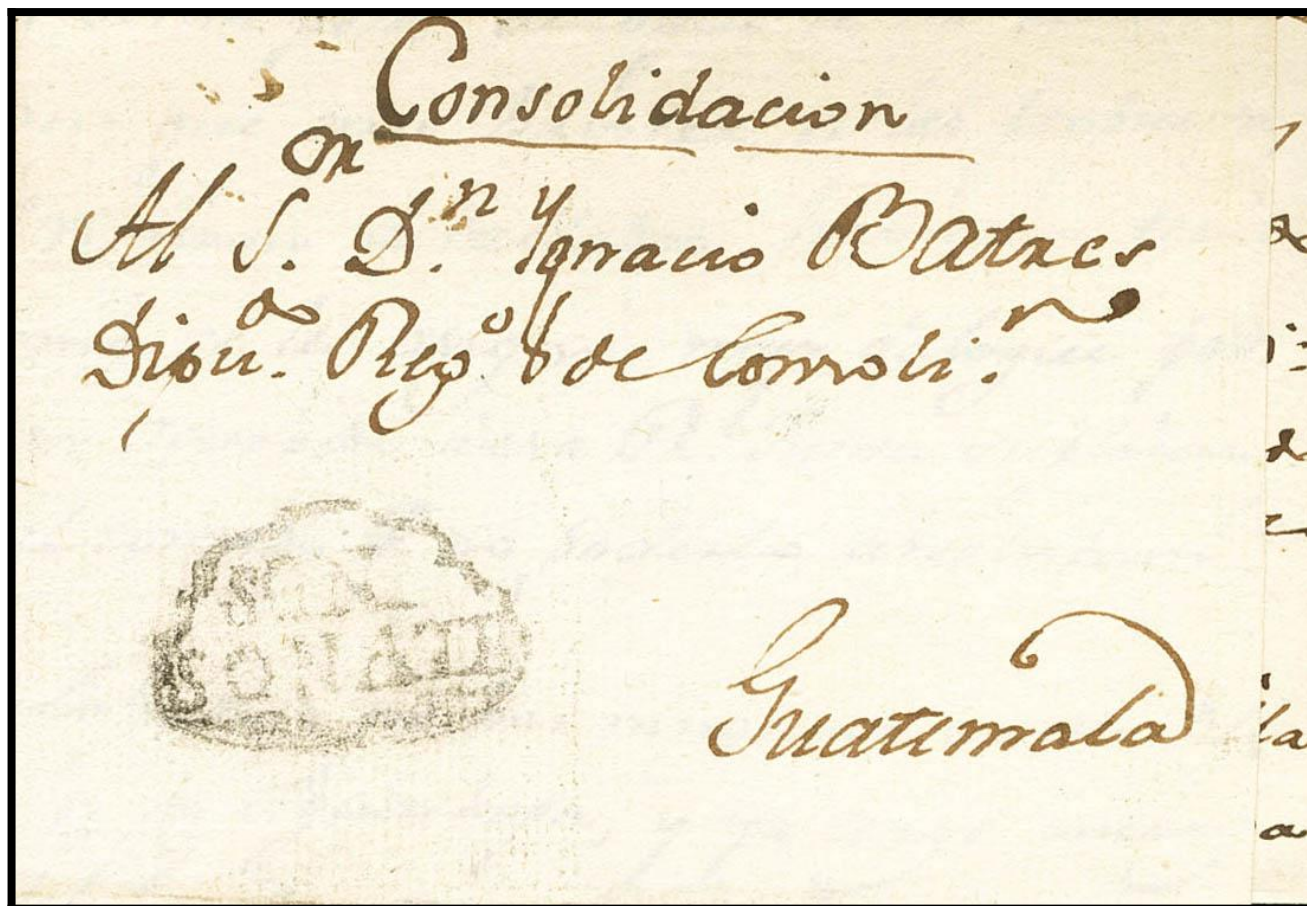 Consolidacion
Al S.or D.n Ygnacio Batres
Dipu.do Reg.o de Consoli.n
SONATE
Guatemala